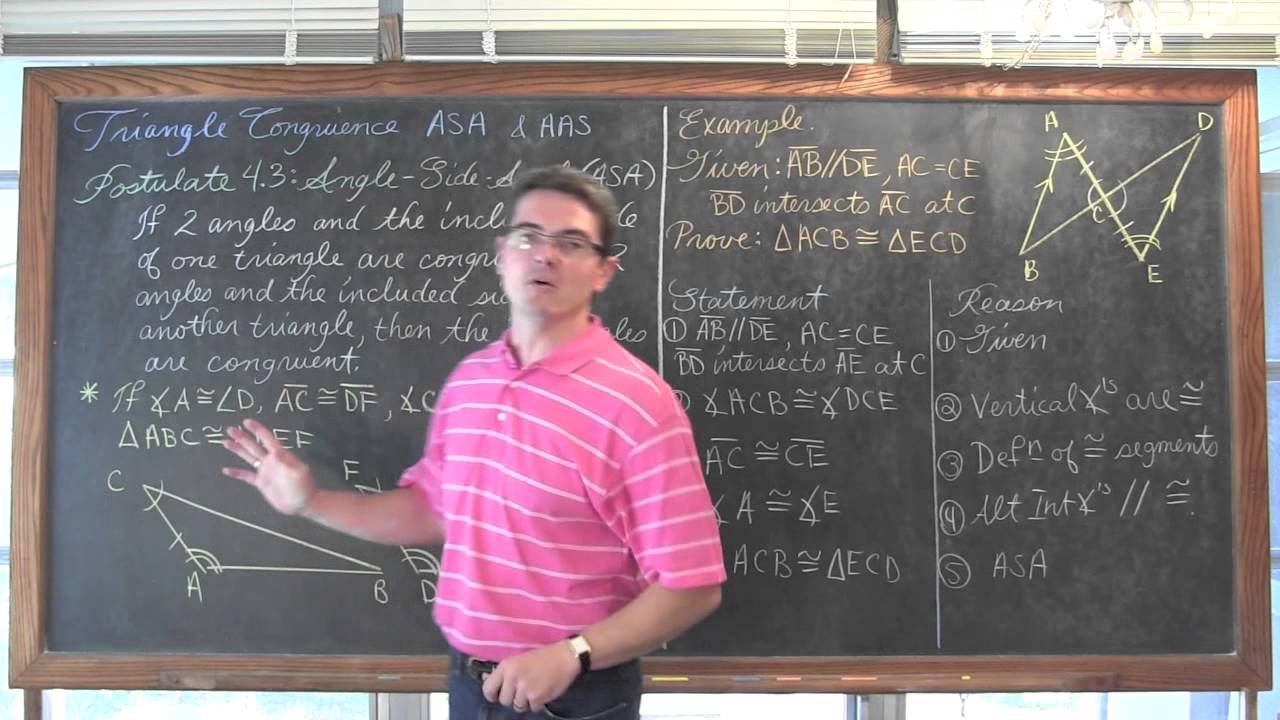 Triangle Congruence ASA & AAS
Postulate 4.3: Angle-Side- (ASA)
If 2 angles and the
of one triangle are
angles and the included
another triangle, then the
are congruent.
* If ∡A≅∠D, AC≅DF, ∡C
ΔABC≅ EF
C
A
B
F
D
Example.
Given: AB//DE, AC=CE
BD intersects AC at C
Prove: ΔACB≅ΔECD
A
D
C
B
E
Statement
① AB//DE, AC=CE
BD intersects AE at C
∡ACB≅∡DCE
AC≅CE
∡A≅∡E
ACB≅ΔECD
Reason
① Given
② Vertical ∡'s are ≅
③ Defn of ≅ segments
④ Alt Int ∡'s // ≅.
⑤ ASA